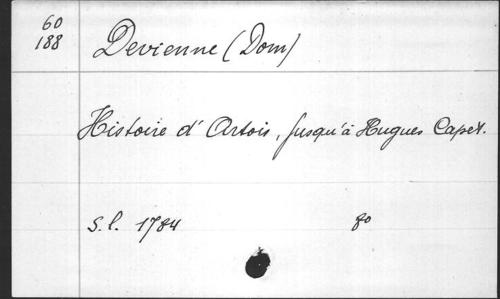 60
188
Devienne (Dom)
Histoire d'Artois, jusqu'à Hugues Capet.
S. l. 1784 8o